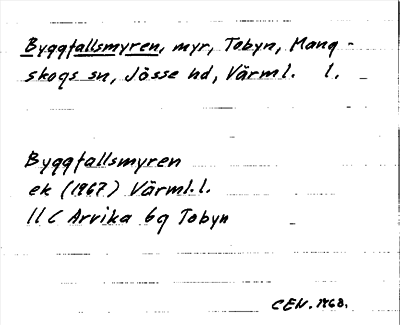 Byggfallsmyren, myr, Tobyn, Mang-
skogs sn, Jösse hd, Värml. l.
Byggfallsmyren
ek (1967) Värml.l.
11 C Arvika 6g Tobyn
CEN. 1968.